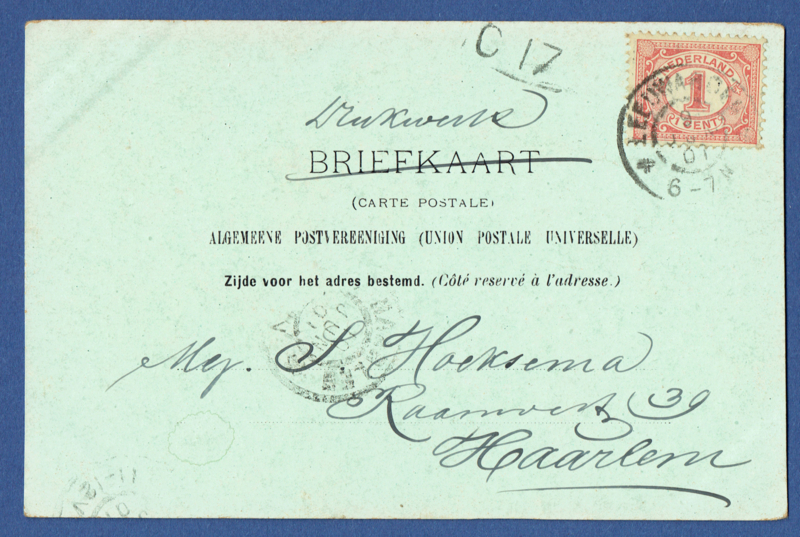 C 17
NEDERLAND
1
CENT
LEEUWARDEN
01
6-7N
Drukwerk
BRIEFKAART
(CARTE POSTALE)
ALGEMEENE POSTVEREENIGING (UNION POSTALE UNIVERSELLE)
Zijde voor het adres bestemd. (Côté reservé à l'adresse.)
Mej. S. Hoeksema
39
Haarlem